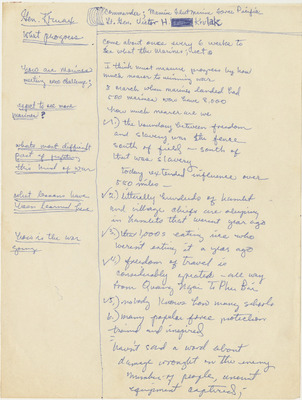 Gen. Krulak
Commander, Marine
Force Pacific
Lt. Gen. Victor H. Krulak
What progress
Come about once every 6 weeks to
see what the Marines
How are marines
meeting challenge?
I think must measure progress by how
much nearer to winning war.
8 March when marines landed had
500 marines now have 8,000
how much nearer are we
expect to see more
marines?
1) the boundary between freedom
and slavery was the fence
south of field - south of
that was slavery
Today extended influence over
550 miles -
whats most difficult
part of fighting
this kind of war
2) literally hundreds of hamlet
and village chiefs are sleeping
in hamlets that weren't year ago
what lessons have
been learned here
3) 1000s eating rice who
weren't eating it a year ago
How is the war
going
4) freedom of travel is
considerably greater - all way
from Quang Ngai to Phu Bai
5) nobody knows how many schools
6) many popular force protection
trained and inspired
haven't said a word about
damage wrought on the enemy
number of people,
equipment captured;